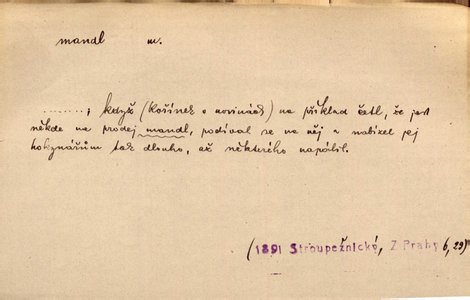 mandl m.
........; když (Košínek v novinách) na příklad četl, že jest
někde na prodej mandl, podíval se na něj a nabízel jej
hokynářům tak dlouho, až některého napálil.
(1891 Stroupežnický, Z Prahy 6, 29)